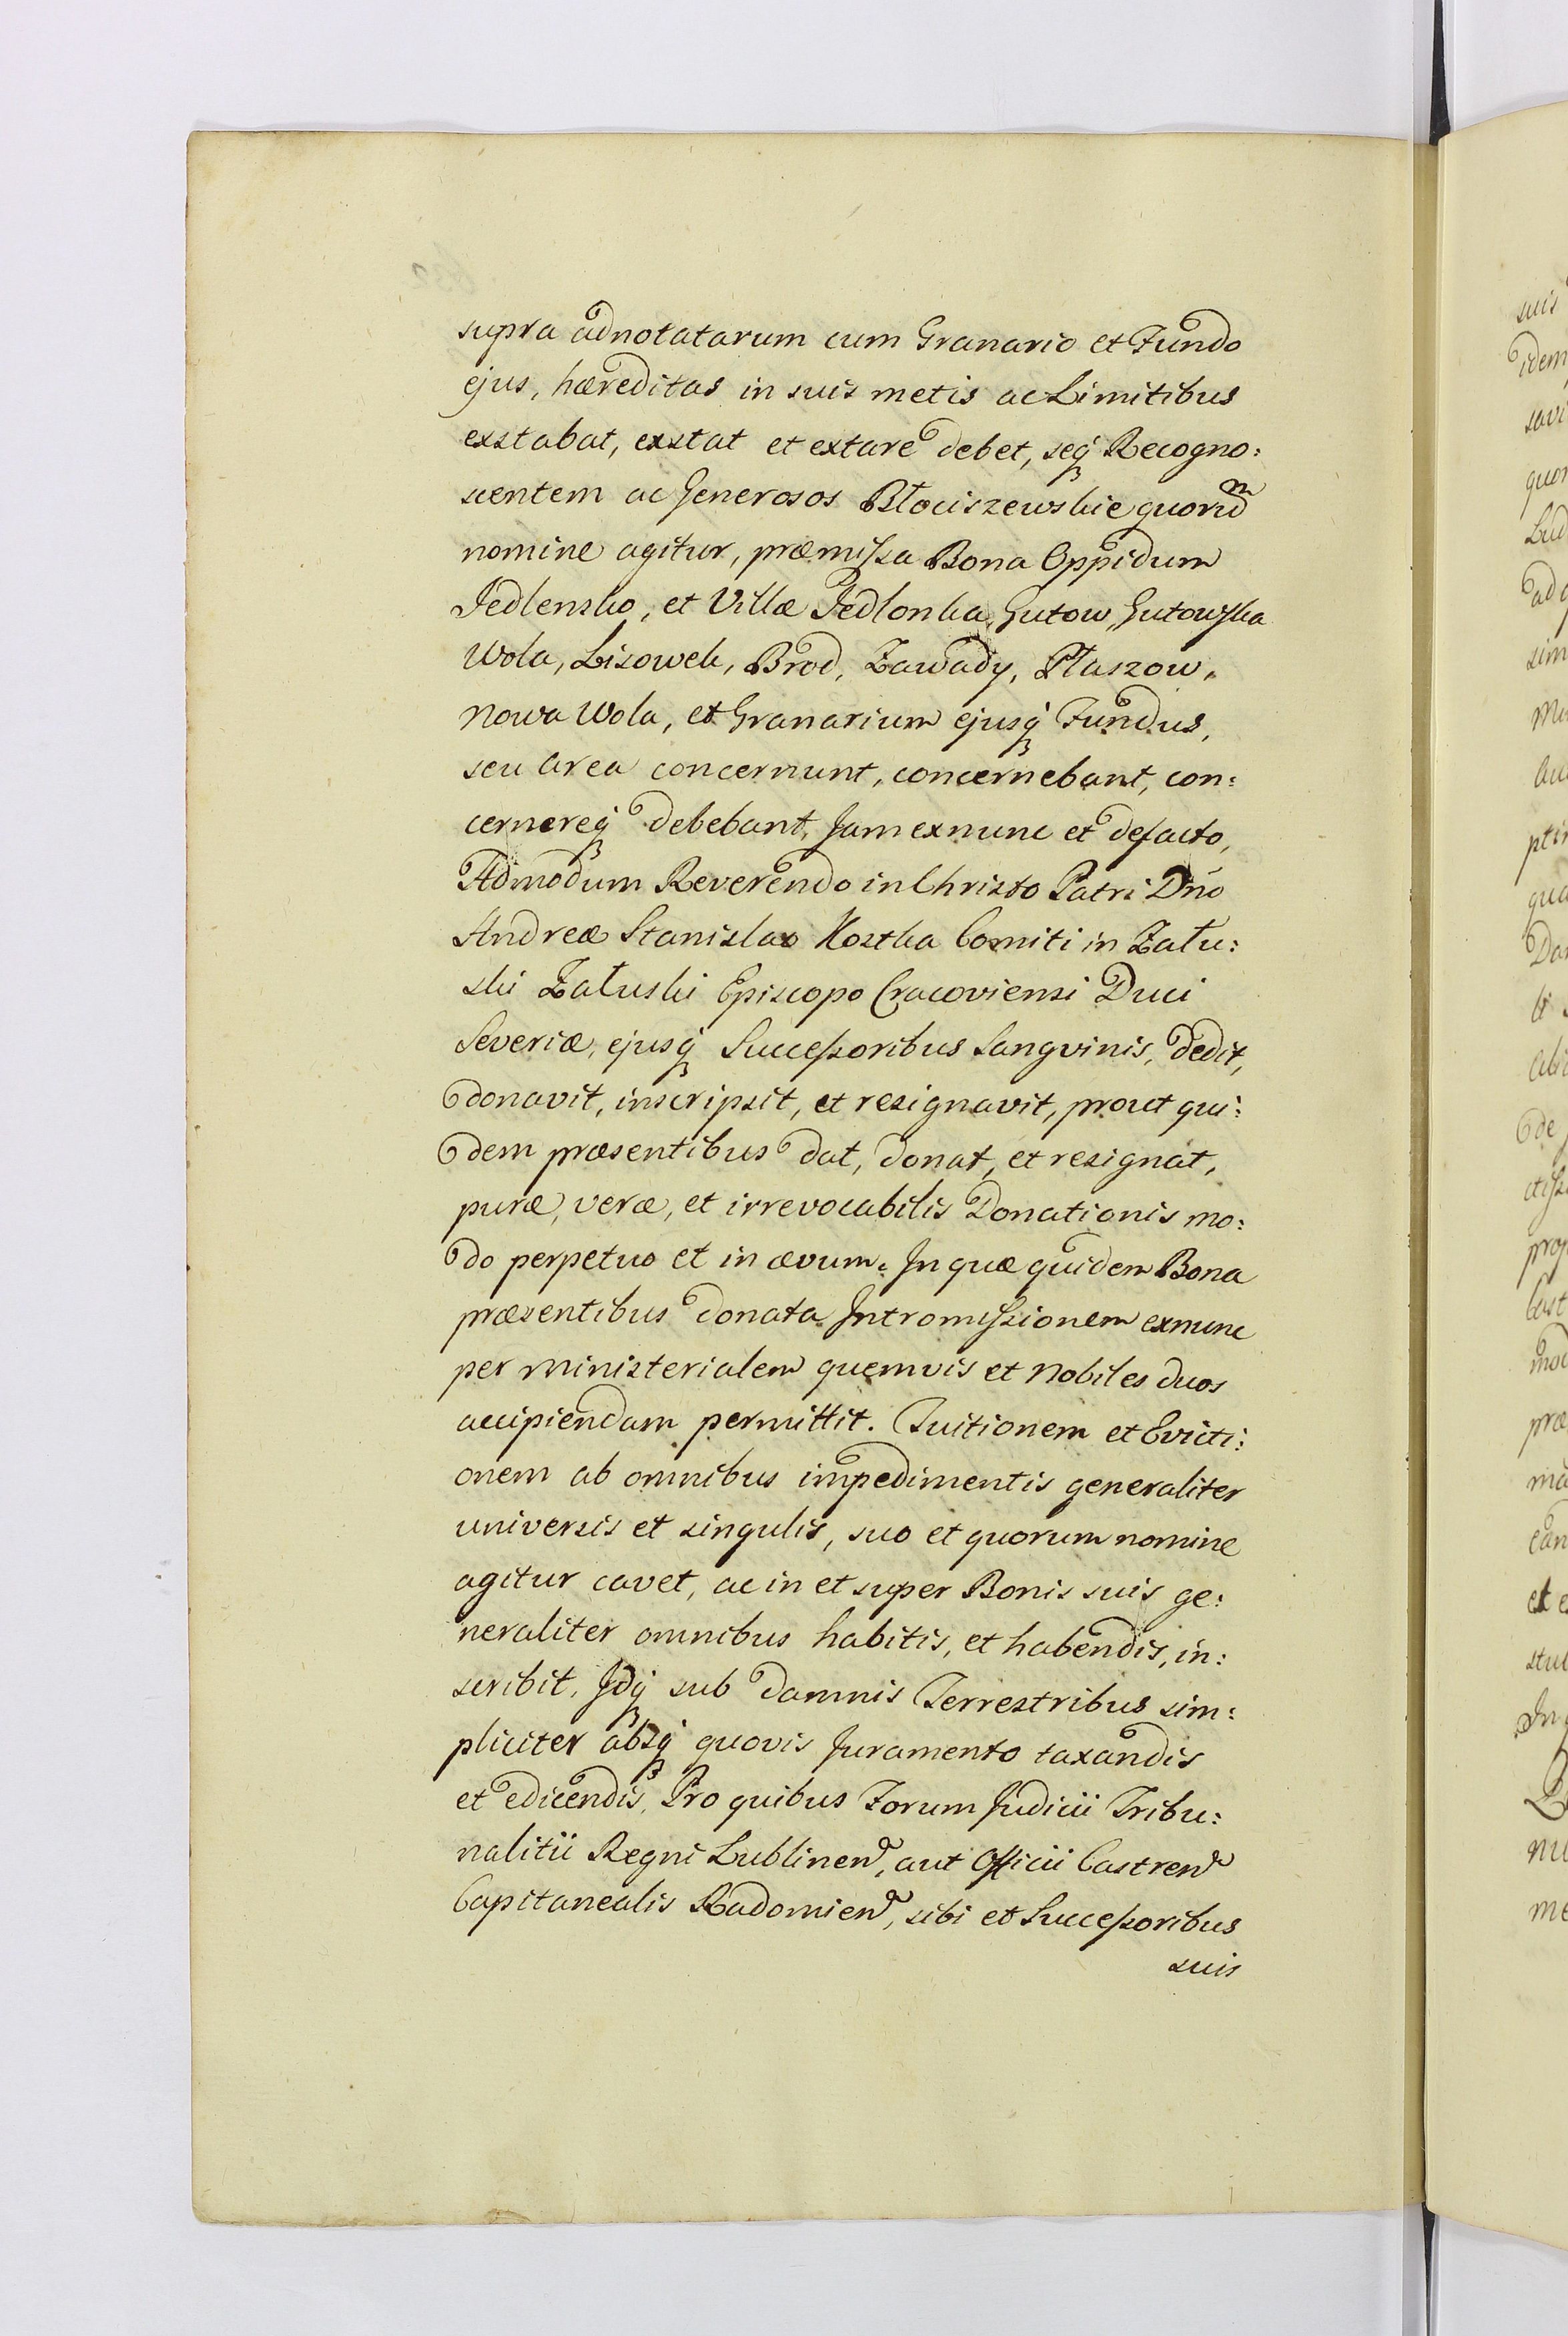 supra adnotatarum cum Granario et Fundo
ejus, hæreditas in suis metis ac Limitibus
exstabat, exstat et extare debet, seq́ꝫ Recogno:
scentem ac Generosos Błociszewskie quorũ
nomine agitur, præmissa Bona Oppidum
Jedlensko, et Villæ Jedlonka, Gutow, Gutowska
Wola, Lisowek, Brod, Zawady, Płaszow,
Nowa Wola, et Granarium ejusq́ꝫ Fundus,
seu Area concernunt, concernebant, con:
cernereq́ꝫ debebant, Jam exnunc et defacto,
Admodum Reverendo in Christo Patri Dńo
Andreæ Stanislao Kostka Comiti in Zału:
ski Załuski Episcopo Cracoviensi Duci
Severiæ, ejusq́ꝫ Successoribus Sangvinis, dedit,
donavit, inscripsit, et resignavit, prout qui:
dem præsentibus dat, donat, et resignat,
puræ, veræ, et irrevocabilis Donationis mo:
do perpetuo et in ævum. In quæ quidem Bona
præsentibus donata Intromissionem exnunc
per Ministerialem quemvis et Nobiles duos
accipiendam permittit. Tuitionem et Evicti:
onem ab omnibus impedimentis generaliter
universis et singulis, suo et quorum nomine
agitur cavet, ac in et super Bonis suis ge:
neraliter omnibus habitis, et habendis, in:
scribit, Idq́ꝫ sub damnis Terrestribus sim:
pliciter absq́ꝫ quovis Juramento taxandis
et edicendis, Pro quibus Forum Judicii Tribu:
nalitii Regni Lublinen̄, aut Officii Castren̄
Capitanealis Radomien̄, sibi et Successoribus
suis